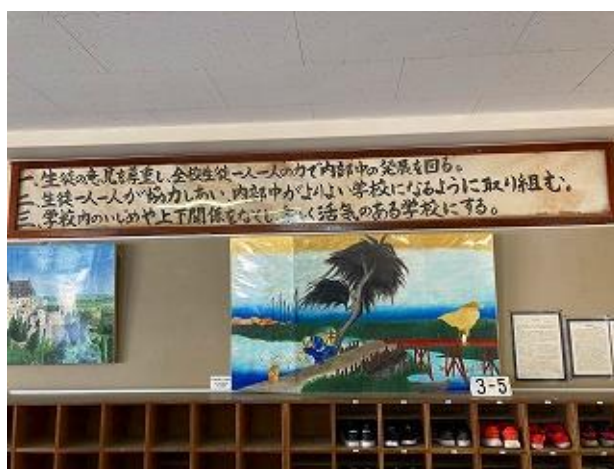 一、生徒の意見を尊重し、全校生徒一人一人の力で内部中の発展を図る。
二、生徒一人一人が協力しあい、内部中がよりよい学校になるように取り組む。
三、学校内のいじめや上下関係をなくし、楽しく活気のある学校にする。
3-5